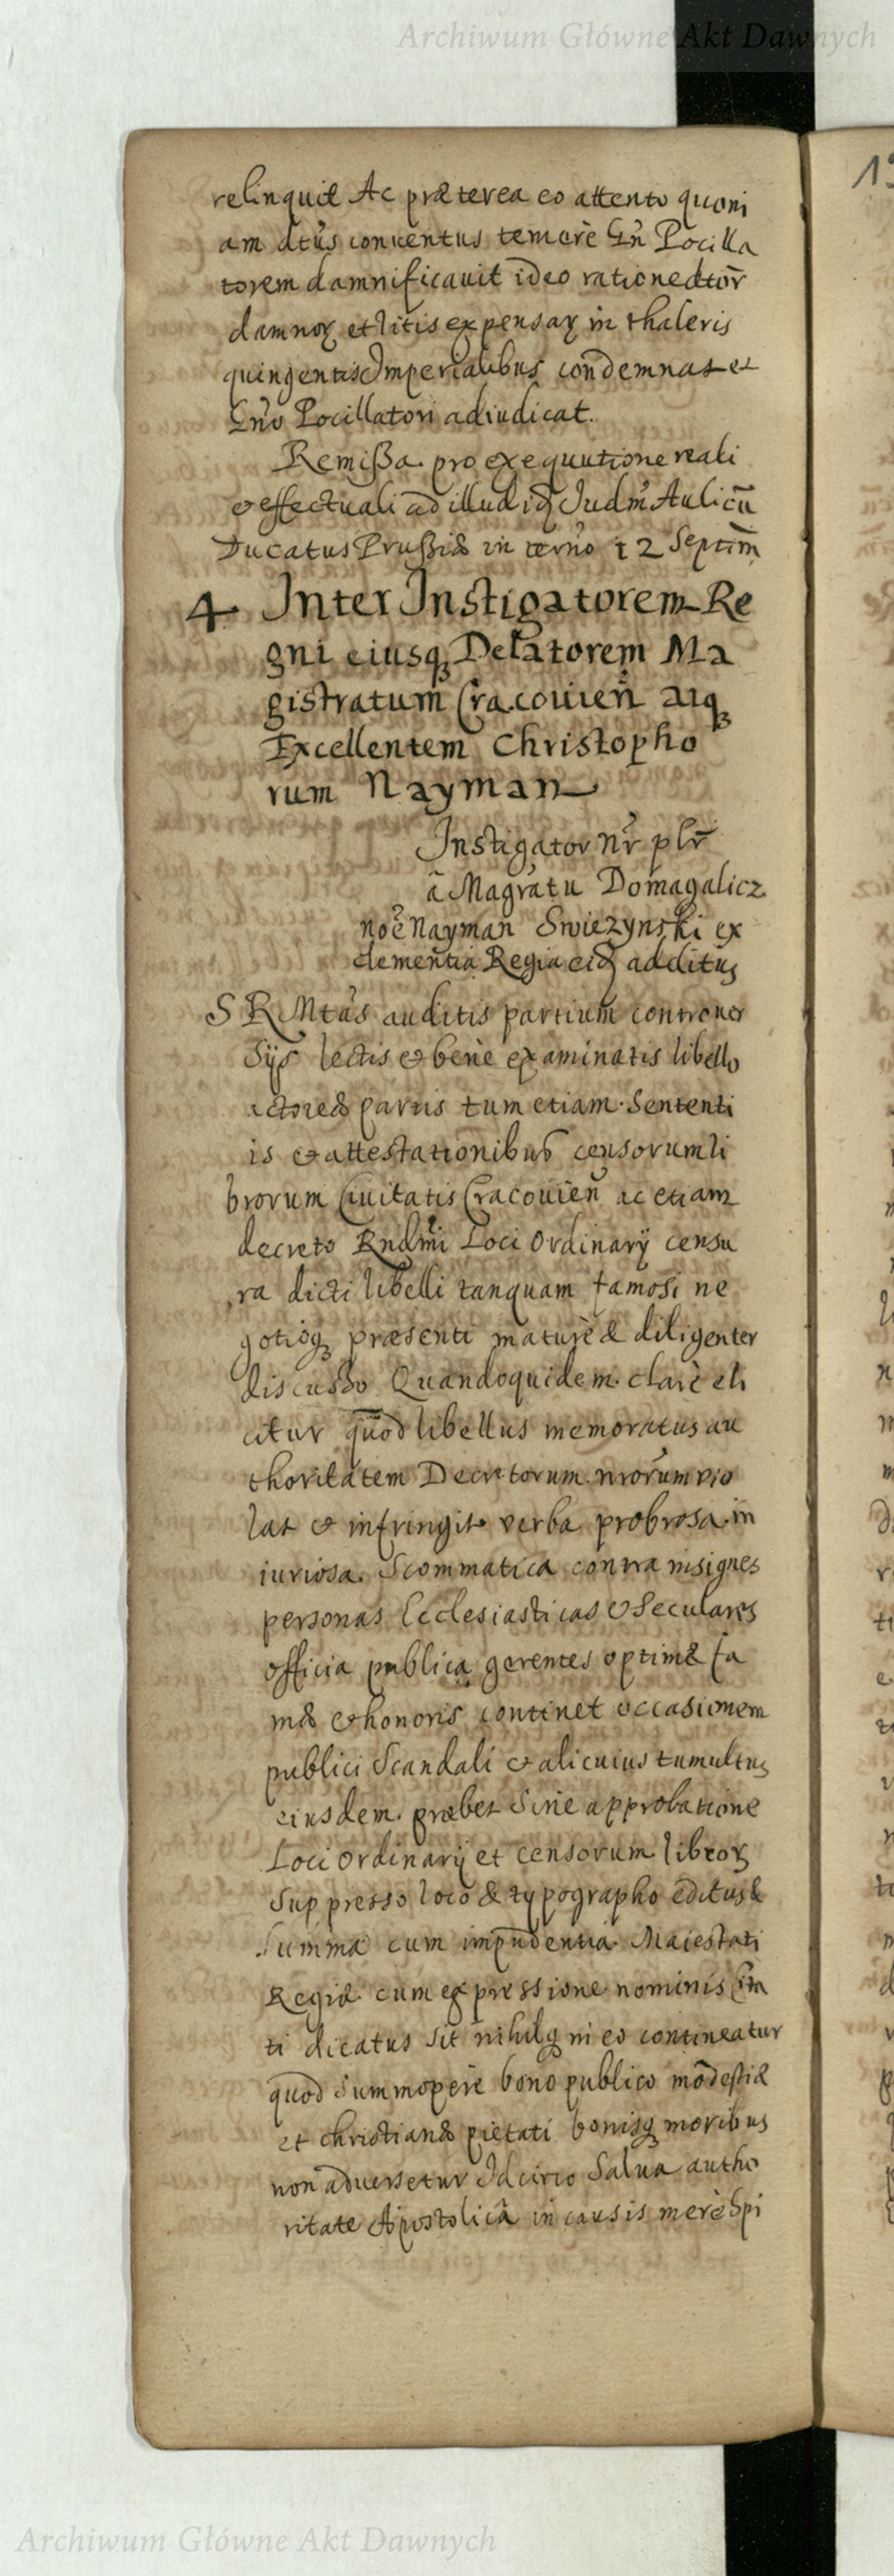 Archiwum Główne Akt Dawnych
19
relinquit Ac præterea eo attento quoni
am dtûs conuentus temerè Gñ Pocilla
torem damnificauit ideo ratione dtor
damnoꝝ et litis expensaꝝ in thaleris
quingentis Imperialibus condemnat et
Gño Pocillatori adiudicat.
Remißa pro exequutione reali
& effectuali ad illud idꝫ Judm Aulicũ
Ducatus Prußiæ in terño 12 Septim
4 Inter Instigatorem Re
gni eiusqꝫ Delatorem Ma
gistratum Cracouień atqꝫ
Excellentem Christopho
rum Nayman
Instigator Nr̃ plr̃
à Magratu Domagalicz
noẽ Nayman Swiezynski ex
clementia Regia eidꝫ additus
S R Mtâs auditis partium controuer
sijs lectis & bene examinatis libello
actoreæ partis tum etiam Sententi
is & attestationibus censorum li
brorum Ciuitatis Cracouień ac etiam
decreto Rndmi Loci Ordinarij censu
ra dicti libelli tanquam famosi ne
gotioqꝫ præsenti maturè & diligenter
discusso Quandoquidem clarè eli
citur quod libellus memoratus au
thoritatem Decretorum nrorum vio
lat & infringit verba probrosa in
iuriosa Scommatica contra insignes
personas Ecclesiasticas & Seculares
officia publica gerentes optimæ fa
mæ & honoris continet occasionem
publici Scandali & alicuius tumultus
eiusdem præbet Sine approbatione
Loci Ordinarij et censorum libroꝝ
Suppresso loco & typographo editus &
Summa cum impudentia Maiestati
Regiæ cum expressione nominis
ti dicatus sit nihilqꝫ in eo contineatur
quod Summopere bono publico modestiæ
et christianæ pietati bonisqꝫ moribus
non aduersetur Idcirco Salua autho
ritate Apostolica in causis merè Spi
Archiwum Główne Akt Dawnych